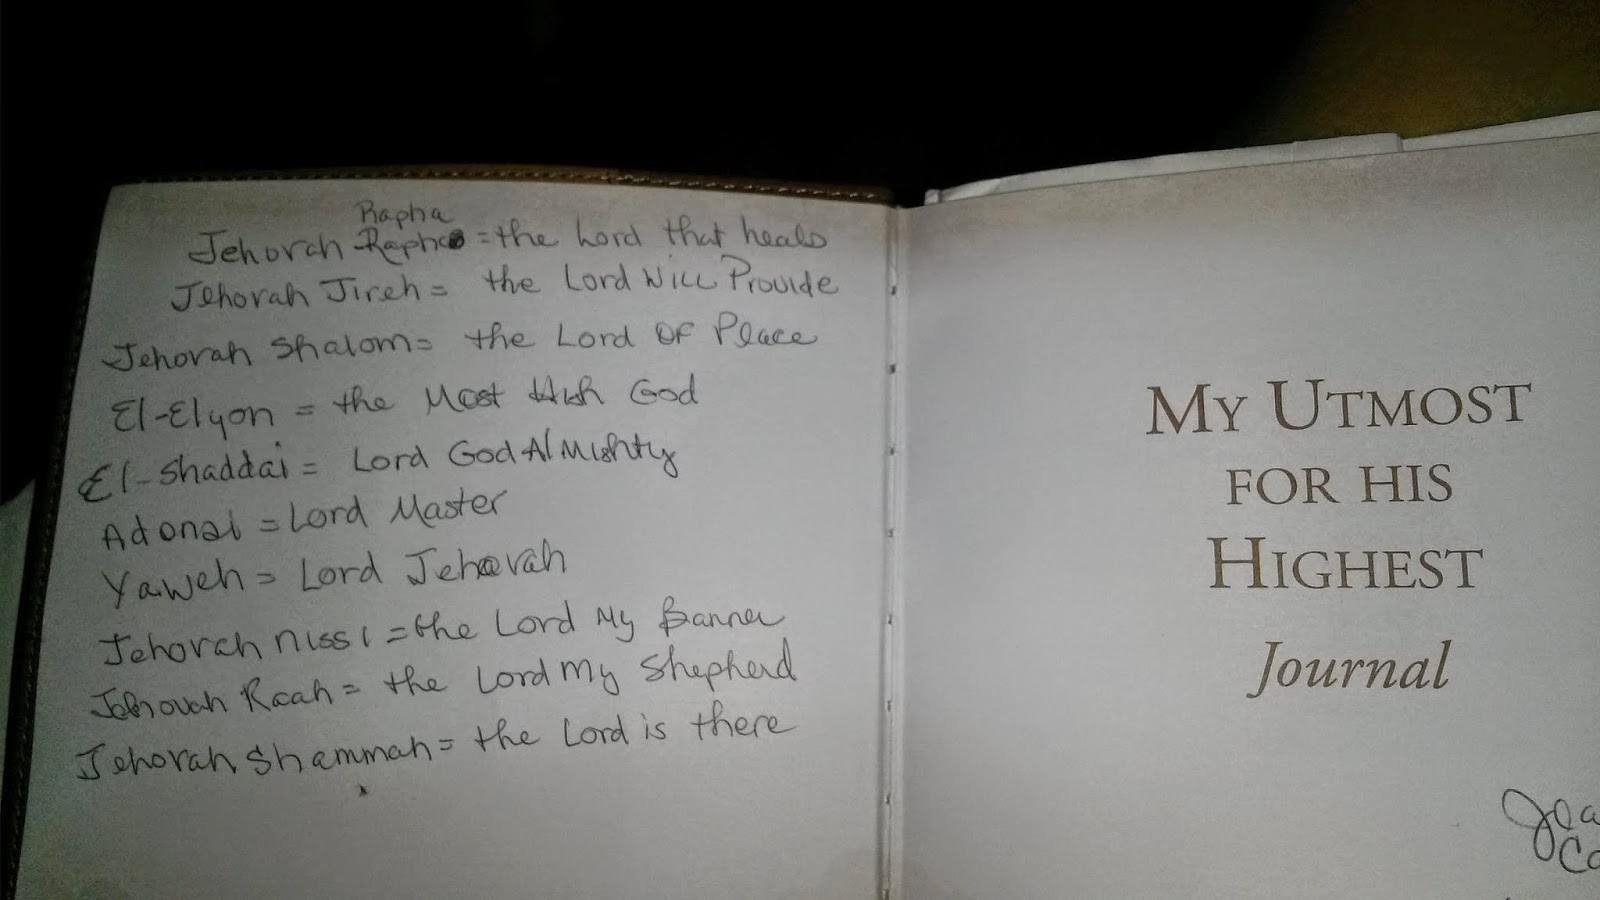 Rapha
Jehovah Rapha = the Lord that heals
Jehovah Jireh = the Lord Will Provide
Jehovah Shalom = the Lord OF Peace
El-Elyon = the Most High God
El-Shaddai = Lord God AlMighty
Adonai = Lord Master
Yaweh = Lord Jehovah
Jehovah Nissi = the Lord My Banner
Jehovah Raah = the Lord My Shepherd
Jehovah Shammah = the Lord is there
MY UTMOST
FOR HIS
HIGHEST
Journal